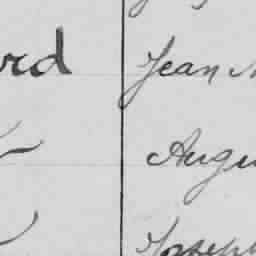 rd Jean
Augu
Joseph